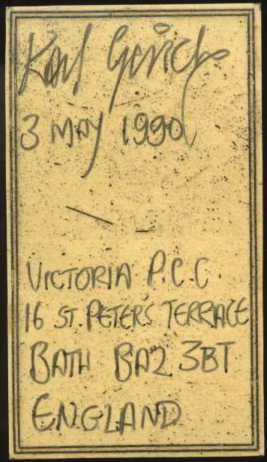 Karl Gerich
3 MAY 1990
VICTORIA P.C.C.
16 ST. PETER'S TERRACE
BATH BA2 3BT
ENGLAND